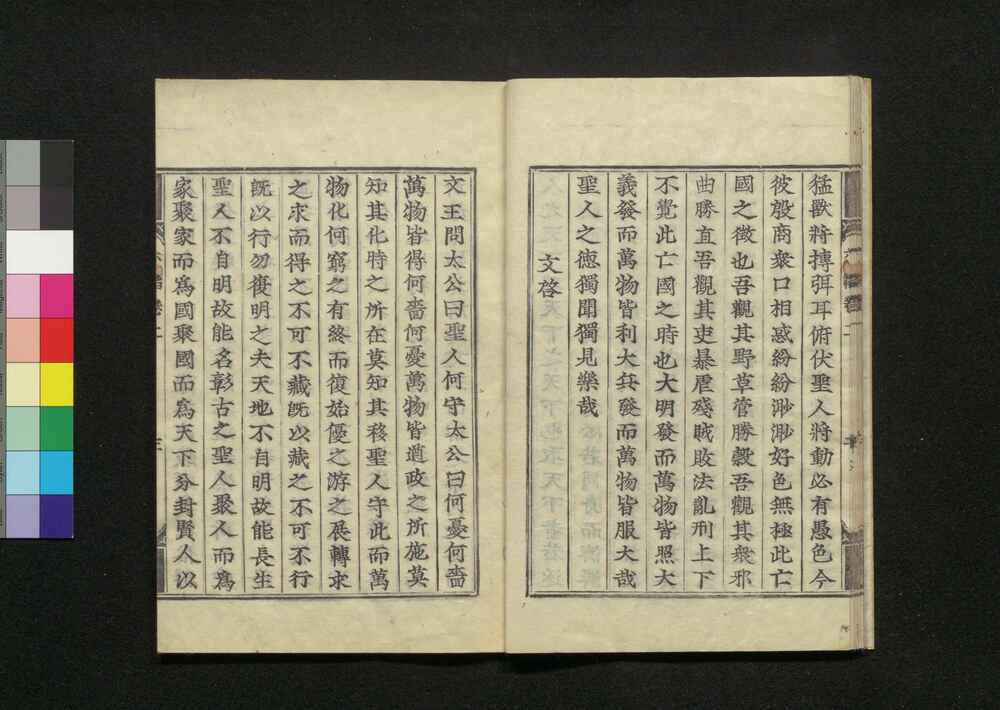 猛獸將搏弭耳俯伏聖人將動必有愚色今
彼殷商衆口相惑紛紛渺渺好色無極此亡
國之徵也吾觀其野草菅勝穀吾觀其衆邪
曲勝直吾觀其吏暴虐殘賊敗法亂刑上下
不覺此亡國之時也大明發而萬物皆照大
義發而萬物皆利大兵發而萬物皆服大哉
聖人之德獨聞獨見樂哉
文啓
文王問太公曰聖人何守太公曰何憂何嗇
萬物皆得何嗇何憂萬物皆遒政之所施莫
知其化時之所在莫知其移聖人守此而萬
物化何窮之有終而復始優之游之展轉求
之求而得之不可不藏旣以藏之不可不行
旣以行勿復明之夫天地不自明故能長生
聖人不自明故能名彰古之聖人聚人而爲
家聚家而爲國聚國而爲天下分封賢人以